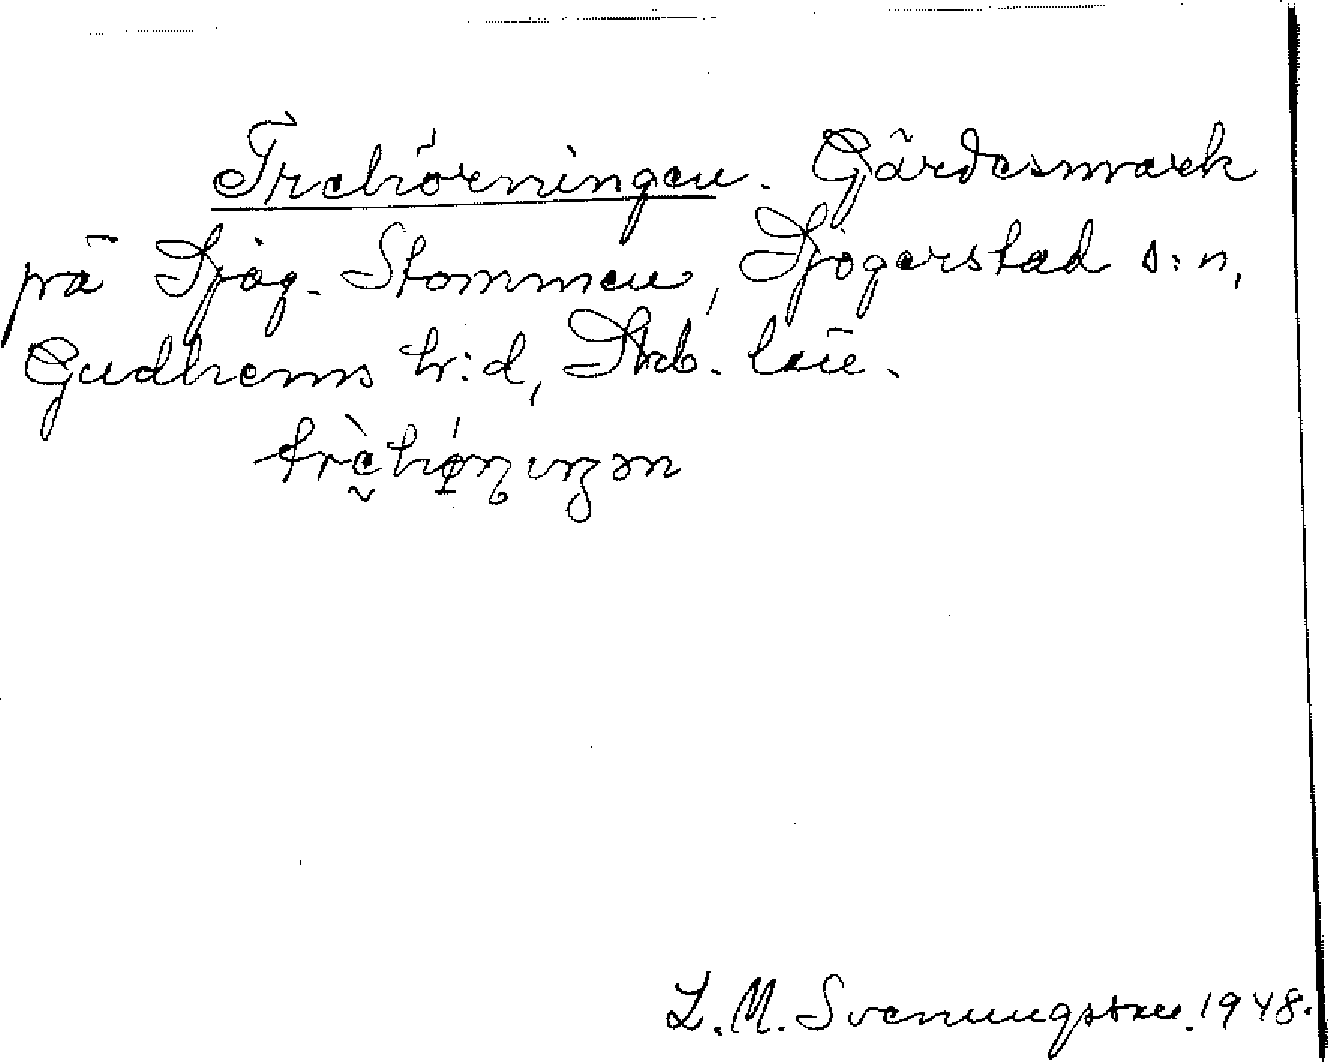 Trehörningen. Gärdesmark
på Sjög. Stommen, Sjogerstad s:n,
Gudhems h:d, Skb. län.
L. M. Svenungsson. 1948.